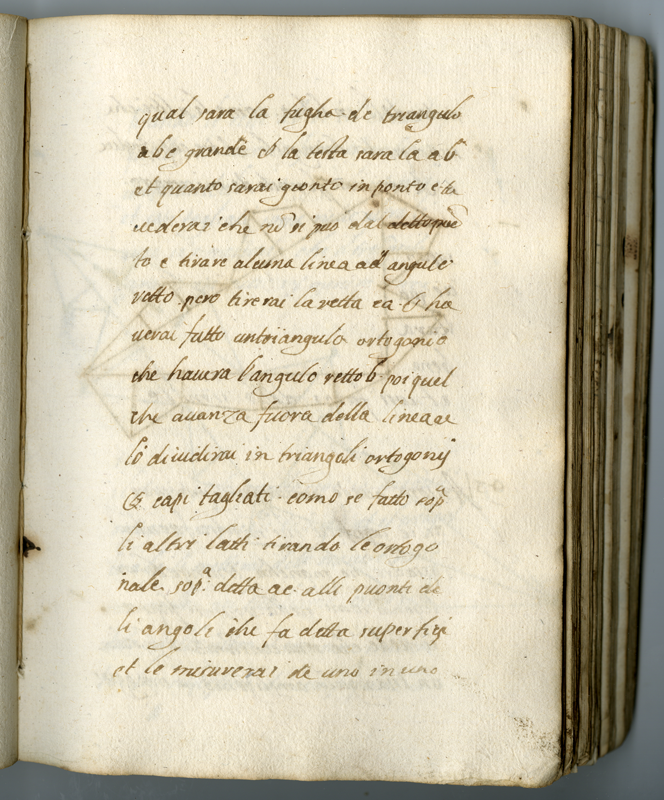 qual sara la lugha de triangulo
abe grande et la testa sara la ab
et quanto sarai gionto in ponto e tu
uederai che nõ si puo dal detto pũe
to e tirare alcuna linea ad angulo
retto pero tirerai la retta ea b ha
uerai fatto un triangulo ortogonio
che hauera l'angulo retto b poi quel
che auanza fuora della linea ae
lo diuidirai in triangoli ortogonij
capi tagliati como se fatto sopª
li altri latti tirando le ortogo
nale sopª detta ae alli puonti de
li angoli che fa detta superfitj
et le misurerai de uno in uno